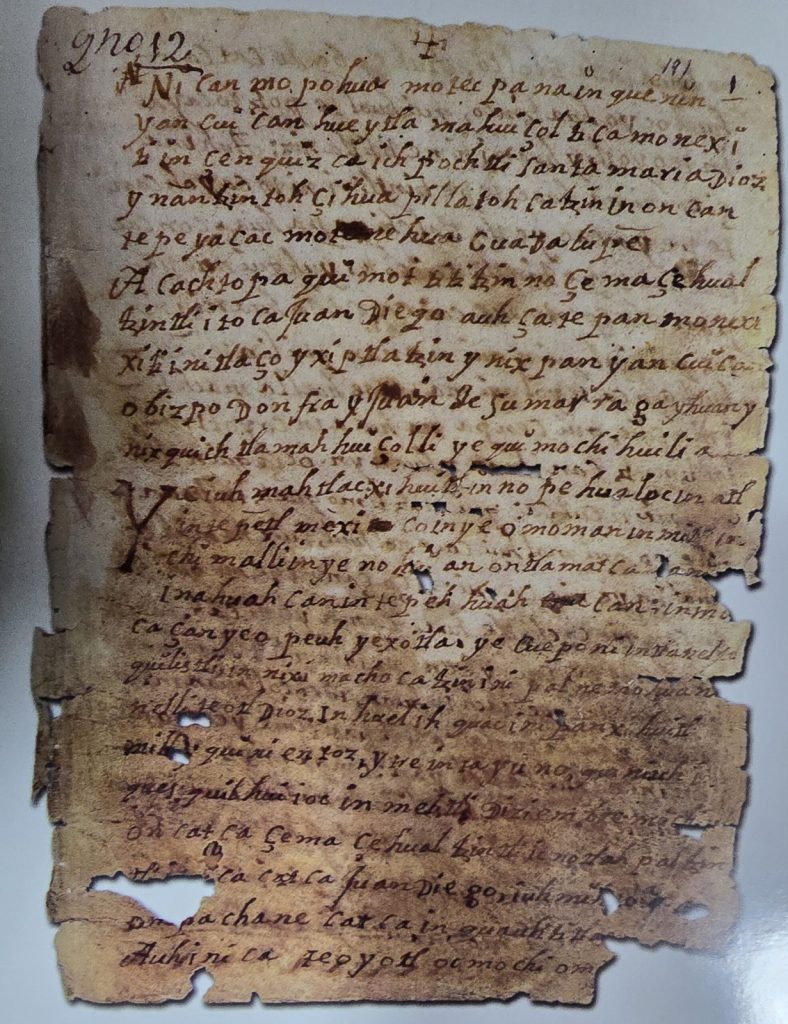 2no 12
191 1
Nican mo pohua motec pana in quenin
yan cui can hueytla mahuiçoltica monexi
ti in çen quiz ca ich pochtli santa maria Dioz
y nantzin toh çihua pillatoh catzin in on can
te pe yacac mote nehua Guadalupe
Acachto pa qui mot titi tzin no çe ma çe hual
tzintli i to ca Juan Diego auh ça te pan monexi
xiti in i tlaço yxiptlatzin y nix pan yan cui ca
obizpo Don fray Juan de sumarraga yhuan y
nix quich tlamahhuiçolli ye qui mochi huili a
Ye iuh mahtlac xihuitl in no pe hualoc in atl
in tepetl mexi co in ye omoman in mitl in
chi malli in ye no huian ontlamatca
Inahuah can in te peh huah can in mo
ca çan ye o peuh ye xotla ye cueponi in tlanelto
quilistli in nixi macho catzin in ipal nemohuani
nelli teotl Dioz In huel ih quac in ipan xihuitl
mill y quinientoz y treinta y uno qui niuh i
quez quilhui ioc in mehtli Diziembre mochi
on catca çema çehual tzintli icnotlah paltzin
catca Juan Diego iuh
om pa chane catca in quauhtitla
Auh in i ca teoyotl oc mochi om